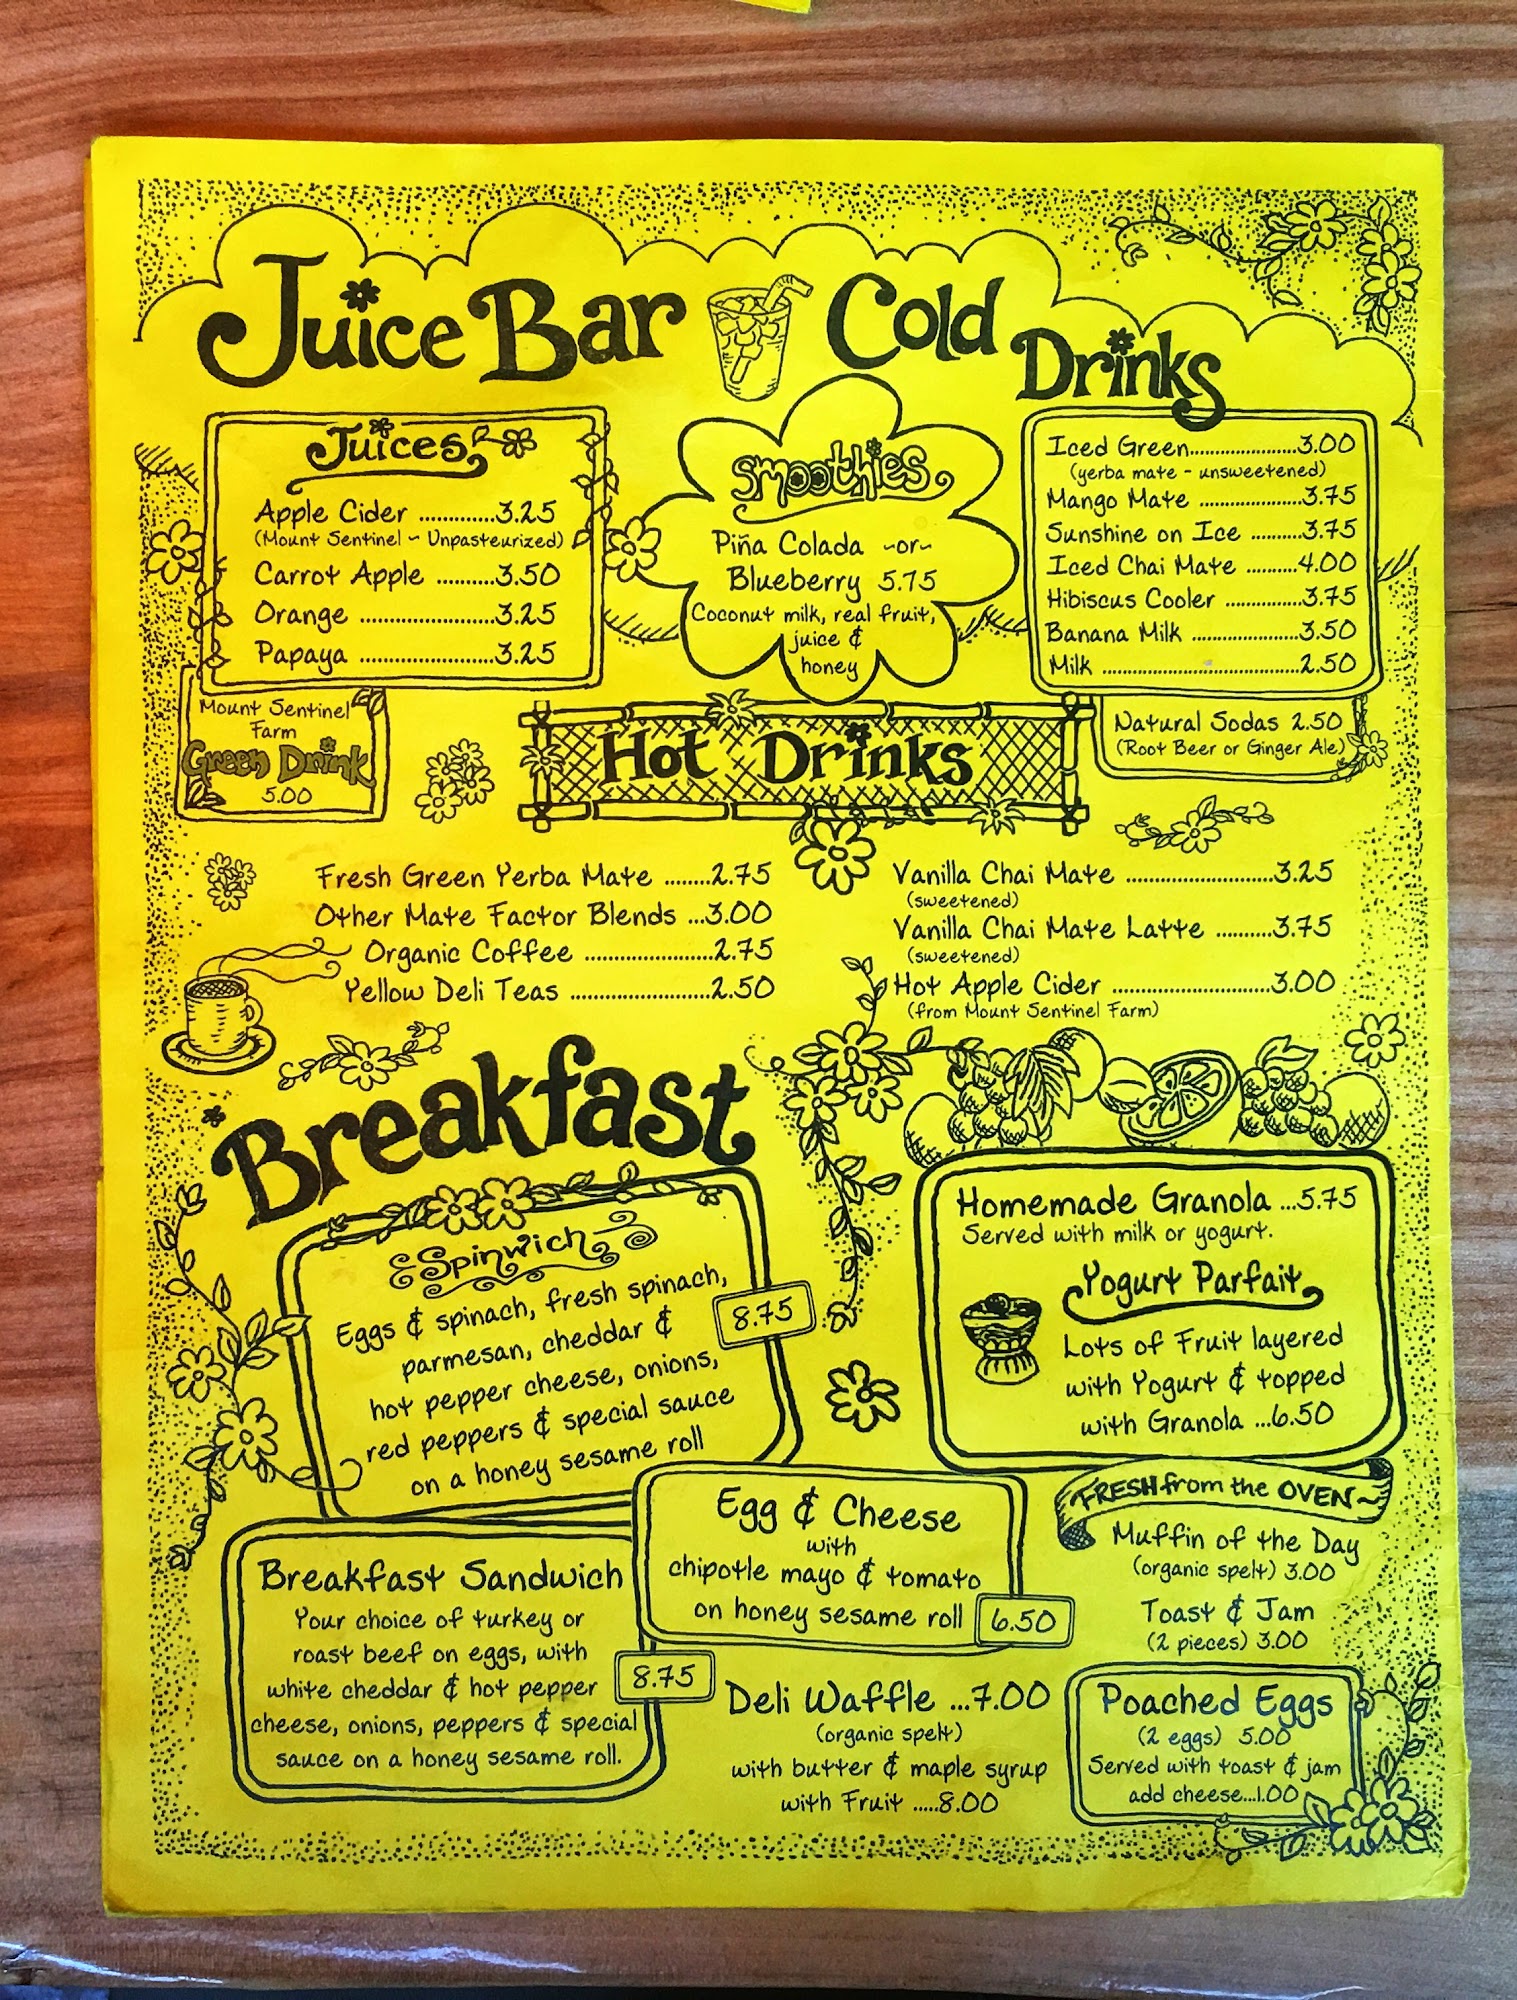 Juice Bar
Cold
Drinks
Juices
Apple Cider ............3.25
(Mount Sentinel ~ Unpasteurized)
Carrot Apple ..........3.50
Orange .....................3.25
Papaya ....................3.25
Mount Sentinel
Farm
Green Drink
5.00
Smoothies
Piña Colada ~or~
Blueberry 5.75
Coconut milk, real fruit,
juice &
honey
Iced Green......................3.00
(yerba mate - unsweetened)
Mango Mate ...................3.75
Sunshine on Ice ..........3.75
Iced Chai Mate ...........4.00
Hibiscus Cooler ..............3.75
Banana Milk ....................3.50
Milk ......................................2.50
Natural Sodas 2.50
(Root Beer or Ginger Ale)
Hot Drinks
Fresh Green Yerba Mate ........2.75
Other Mate Factor Blends ...3.00
Organic Coffee ......................2.75
Yellow Deli Teas ........................2.50
Vanilla Chai Mate .........................3.25
(sweetened)
Vanilla Chai Mate Latte ..........3.75
(sweetened)
Hot Apple Cider ...........................3.00
(from Mount Sentinel Farm)
Breakfast
Spinwich
Eggs & spinach, fresh spinach,
parmesan, cheddar &
hot pepper cheese, onions,
red peppers & special sauce
on a honey sesame roll
8.75
Homemade Granola ...5.75
Served with milk or yogurt.
Yogurt Parfait
Lots of Fruit layered
with Yogurt & topped
with Granola ...6.50
Breakfast Sandwich
Your choice of turkey or
roast beef on eggs, with
white cheddar & hot pepper
cheese, onions, peppers & special
sauce on a honey sesame roll.
8.75
Egg & Cheese
with
chipotle mayo & tomato
on honey sesame roll
6.50
Deli Waffle ...7.00
(organic spelt)
with butter & maple syrup
with Fruit .....8.00
FRESH from the OVEN~
Muffin of the Day
(organic spelt) 3.00
Toast & Jam
(2 pieces) 3.00
Poached Eggs
(2 eggs) 5.00
Served with toast & jam
add cheese...1.00